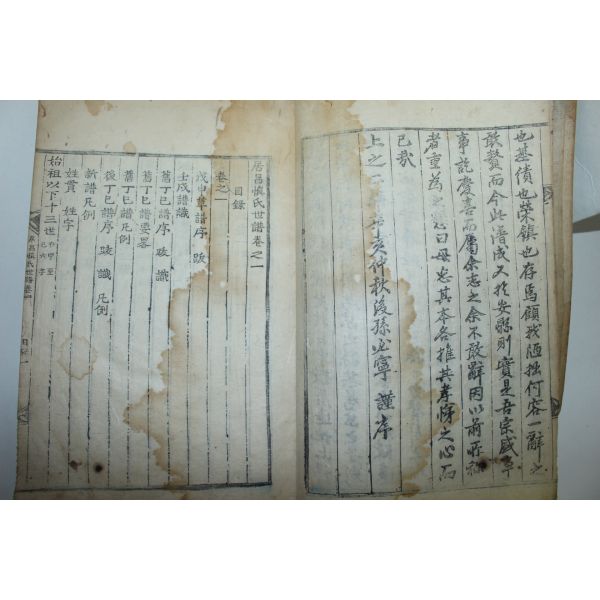 也基績也榮鎮也存焉顧我陋拙何容一辭之
敢贅而今此譜成又於安縣則實是吾宗盛事
事訖慶喜而屬余志之余不敢辭因以前所称
者重為之曰毋忘其本各推其孝悌之心而
已哉
上之亥仲秋後孫必寧謹序
居昌愼氏世譜卷之一
目錄
卷之一
戊申草譜序 跋
壬戌譜識
舊丁巳譜序 跋 識
舊丁巳譜要畧
舊丁巳譜凡例
後丁巳譜序 跋 識 凡例
新譜凡例
姓貫 姓字
始祖以下十三世
居昌愼氏世譜卷之一